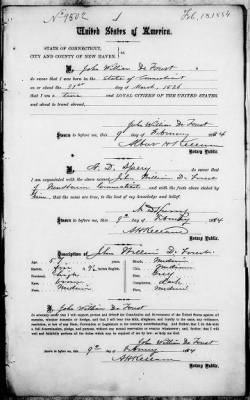 No 1502
1
Feb. 13. 1884
United States of America.
STATE OF CONNECTICUT,
CITY AND COUNTY OF NEW HAVEN, } ss.
I, John William De Forest do swear
that I was born in the State of Connecticut
on or about the 31st day of March, 1826
that I am a LOYAL CITIZEN OF THE UNITED STATES,
and about to travel abroad.
John William De Forest
Sworn to before me, this 9th day of February 1884
Notary Public.
I, N. D. Sperry do swear that
I am acquainted with the above named John William De Forest
of New Haven Connecticut and with the facts above stated by
him, and that the same are true, to the best of my knowledge and belief.
N. D. Sperry
Sworn to before me, this 9th day of February 1884
Notary Public.
Description of John William De Forest
Medium
Medium
dark
Medium
I, John William De Forest
do solemnly swear that I will support, protect and defend the Constitution and Government of the United States against all
enemies, whether domestic or foreign, and that I will bear true faith, allegiance, and loyalty to the same, any ordinance,
resolution, or law of any State, Convention or Legislature to the contrary notwithstanding. And further, that I do this with
a full determination, pledge, and purpose, without any mental reservation or evasion whatever. And further, that I will well
and faithfully perform all the duties which may be required of me by law. So help me God.
John William De Forest
Sworn to before me, this 9th day of February 1884
Notary Public.